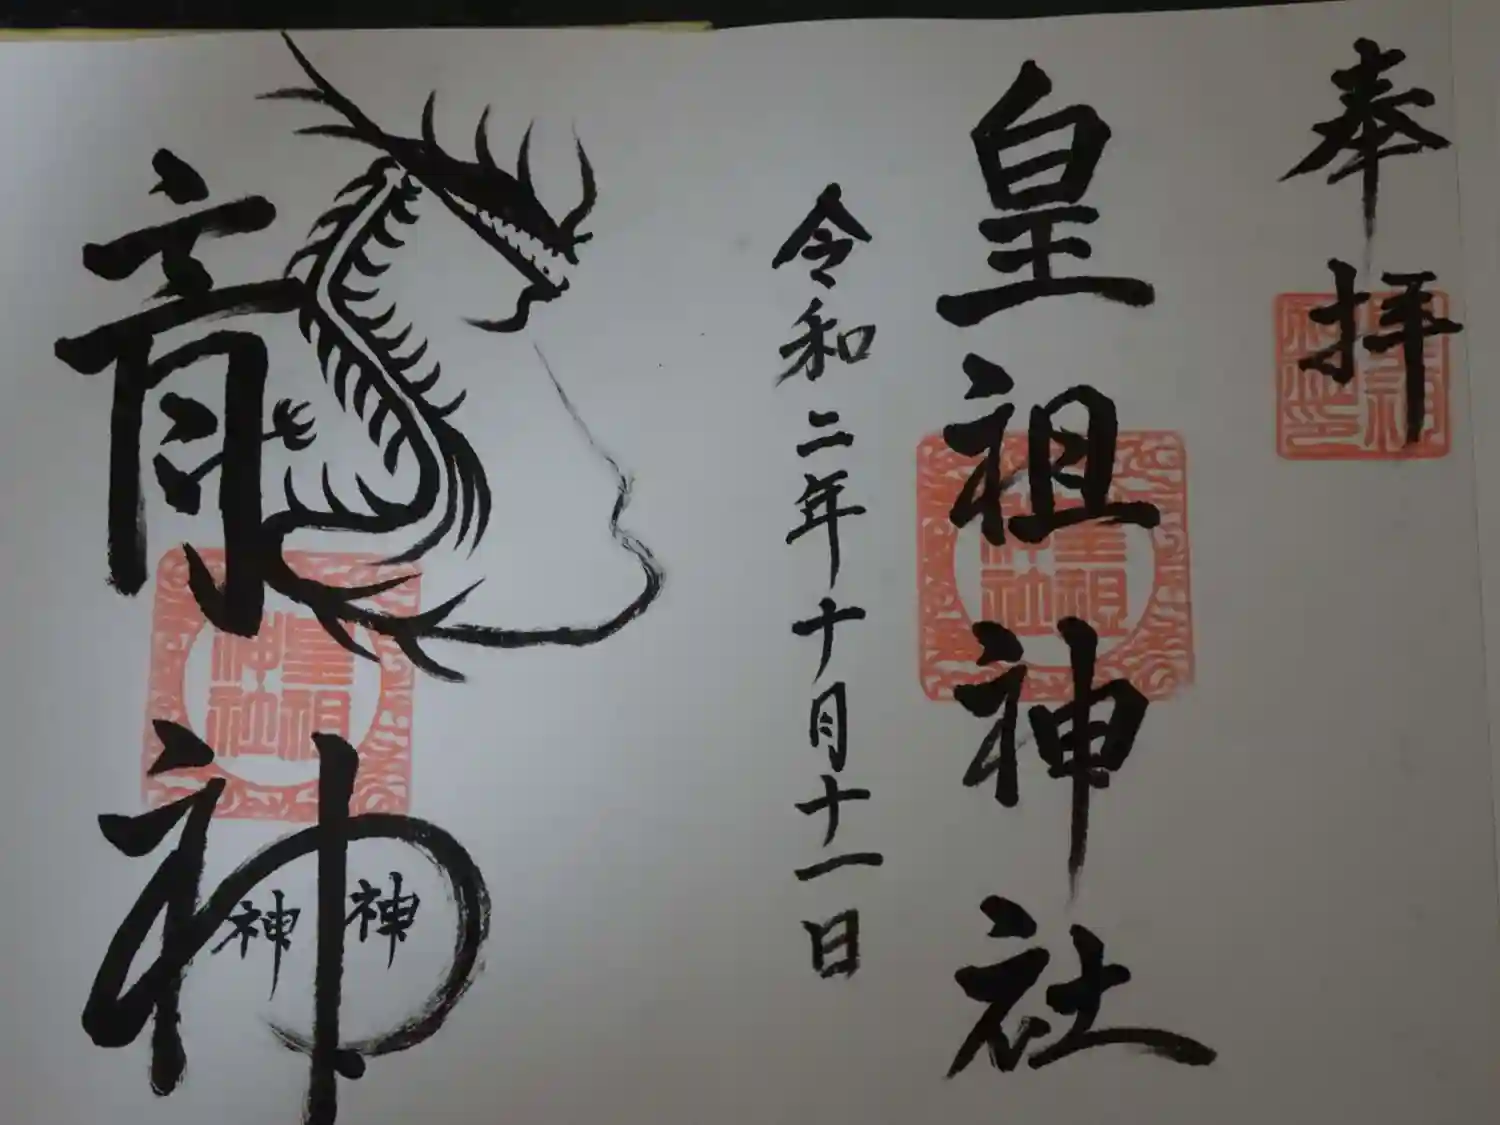 奉拝
皇祖神社
令和二年十月十一日
龍神
神
神
皇祖
神社
皇祖
神社